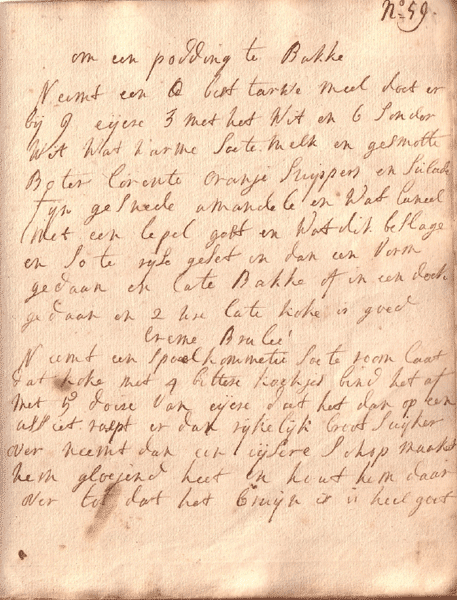 No 59.
om een podding te Bakke
Neemt een lb best tarwe meel doet er
bij 9 eijere 3 met het Wit en 6 sonder
Wit Wat Warme Soete melk en gesmolte
Boter Corente oranje Snippers en
fyn gesneede amandele en Wat Caneel
met een lepel gest en Wat dik beslage
en So te ryse geset en dan een Vorm
gedaan en late Bakke of in een doek
gedaan en 2 ure late koke is goed
Creme Brulé
Neemt een Spoelkommetie Soete room laat
dat koke met 4 bittere bind het af
met 5 doire Van eijere doet het dan op een
raspt er dan rykelyk Broot Suijker
over neemt dan een eijsere Schop maakt
hem gloejend heet en hout hem daar
over tot dat het Bruijn is is heel goet